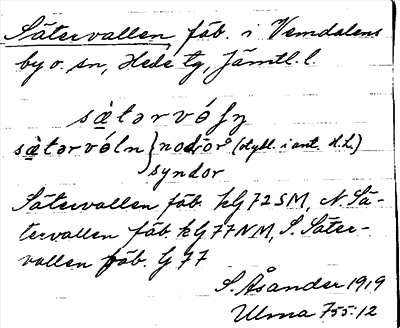 Sätervallen fäb. i Vemdalens
by o. sn, Hede tg, Jämtl. l.
sätərvófy
sätərvóln } nodor (stybl. i ant. d.L.)
syndor
Sätervallen fäb. kG 72 SM, N. Sä-
tervallen fäb. kG 77 NM, S. Säter-
vallen fäb. G 77
S. Åsander 1919
Ulma 755:12